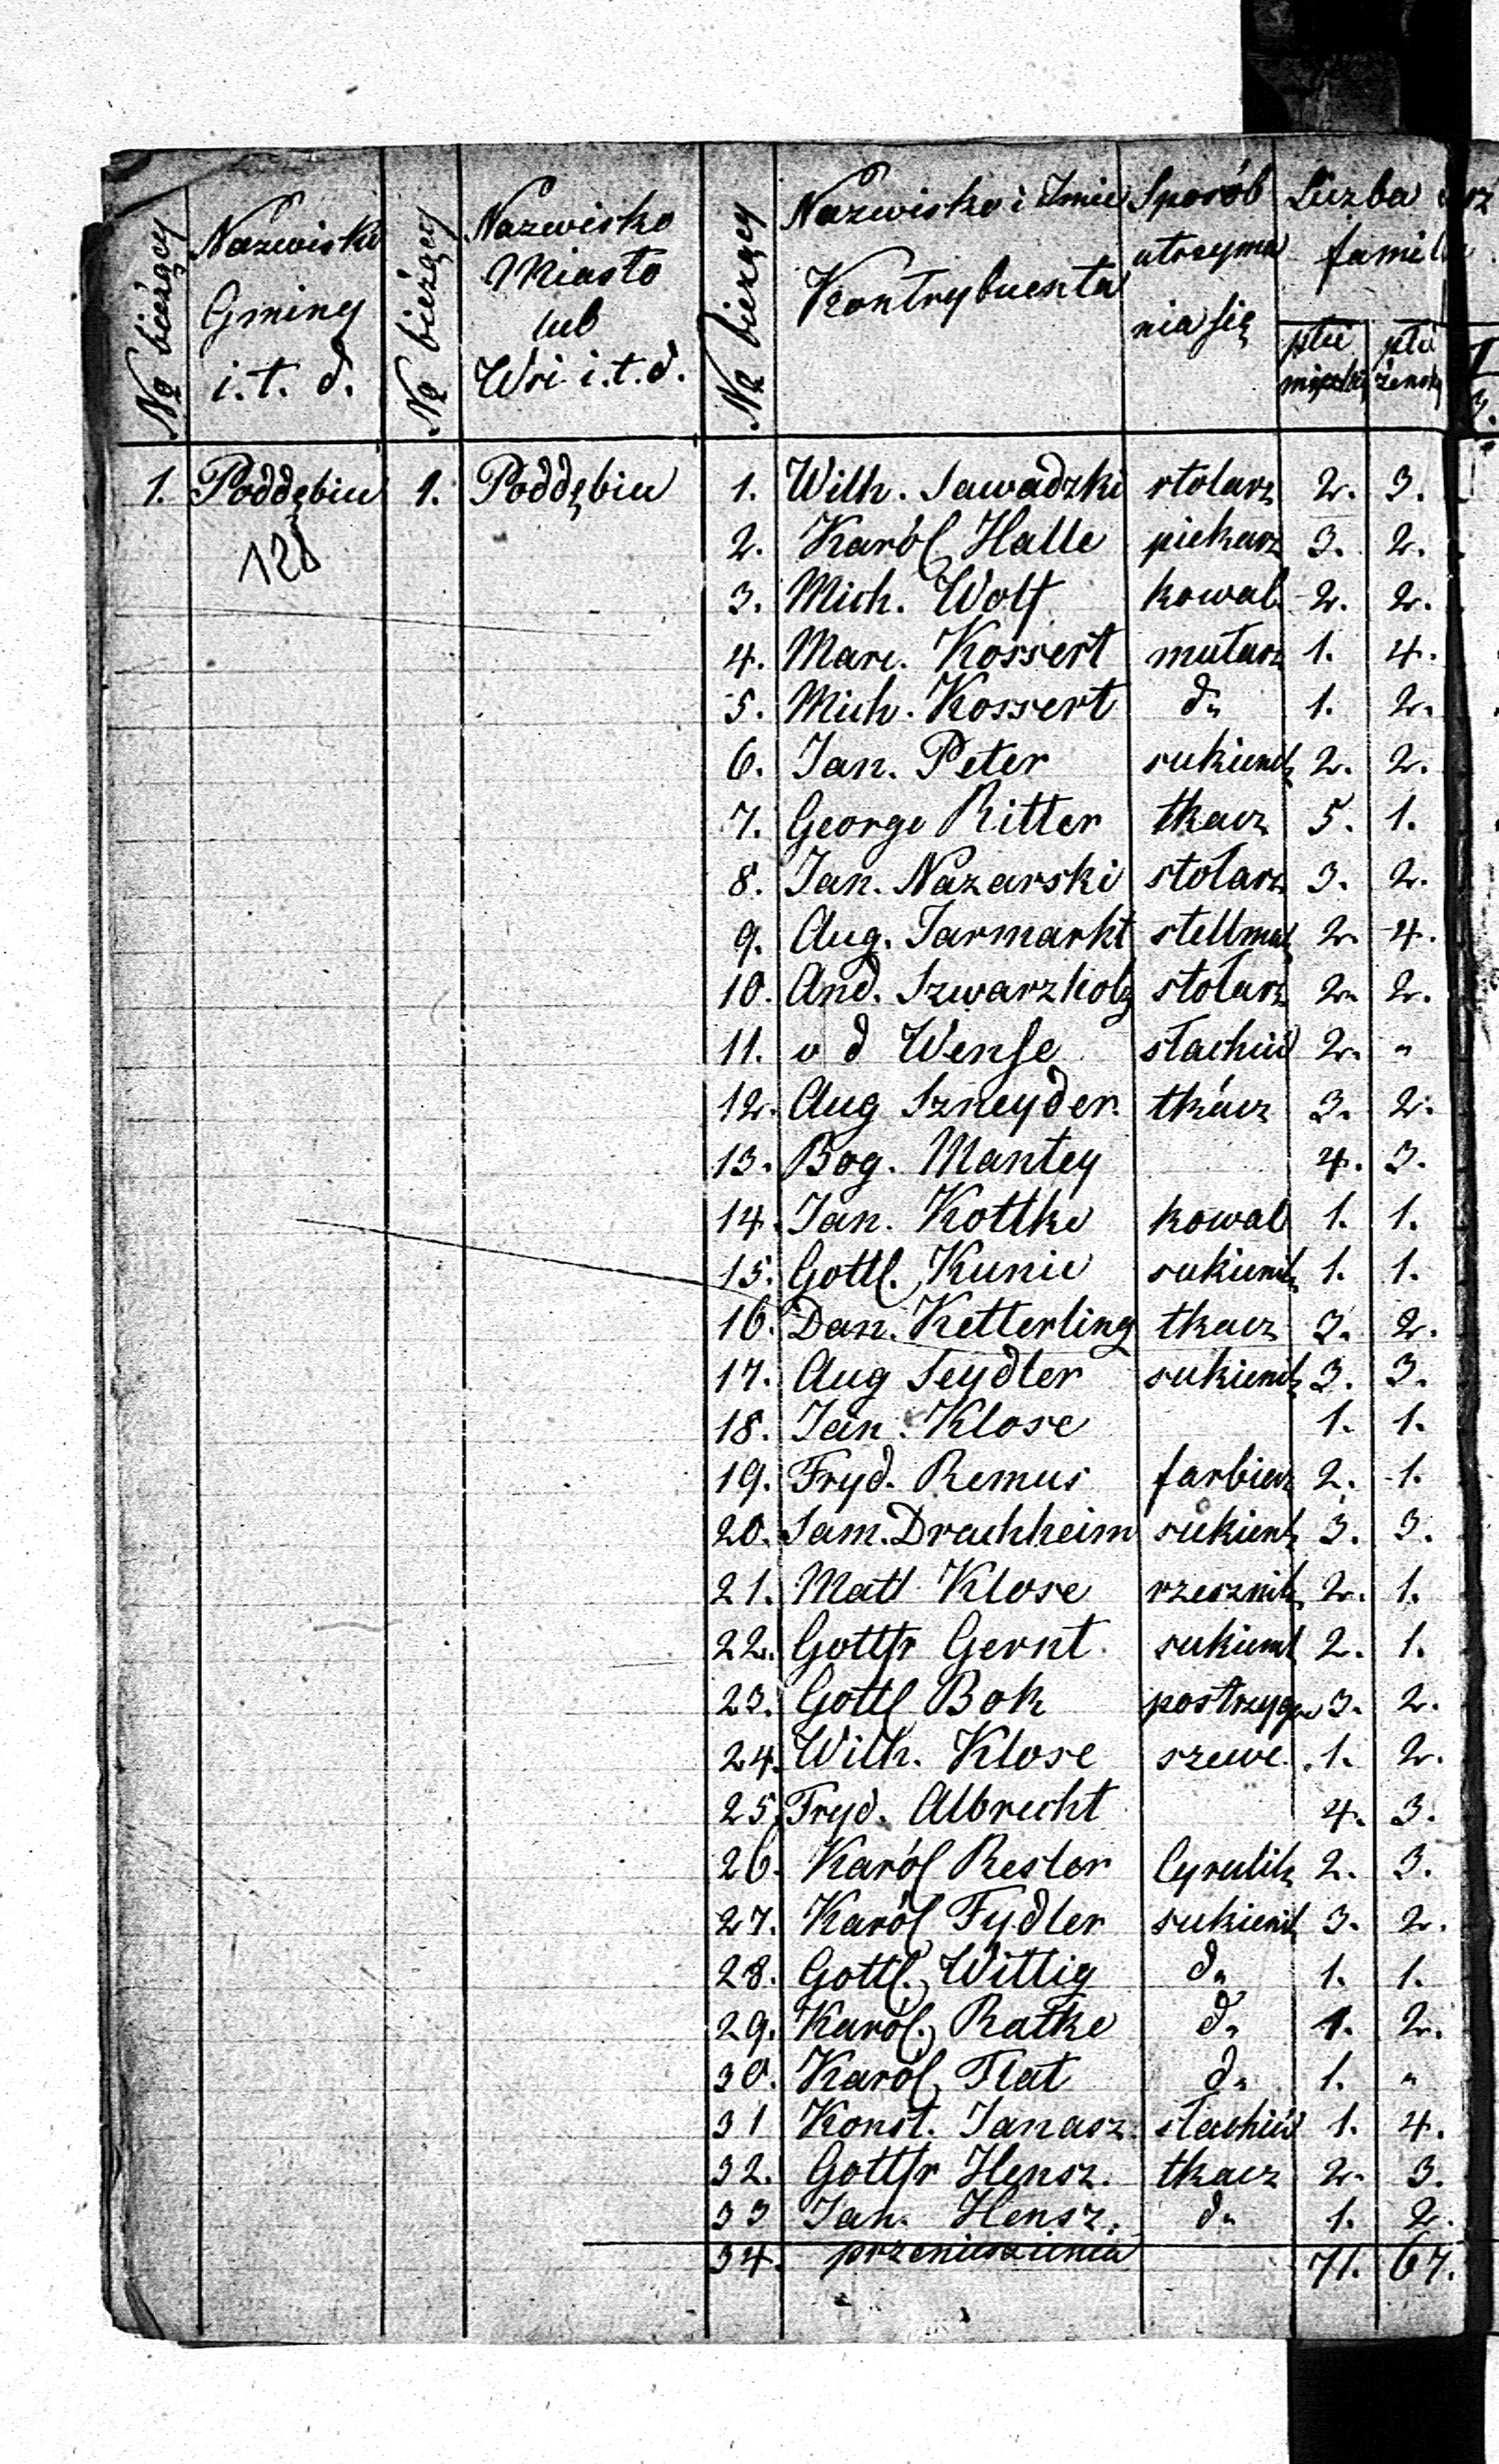 No bieżący
Nazwisko Gminy i. t. d.
No bieżący
Nazwisko Miasto lub Wsi i. t. d.
No bieżący
Nazwisko i Imie Kontrybuenta
Sposób utrzymania się
Liczba
famili
płci męzkiej
płci żensky
1. Poddębiu 1. Poddębiu 1. Wilh. Sawadzki stolarz 2. 3.
128
2. Karól Halle piekarz 3. 2.
3. Mich. Wolf kowal 2. 2.
4. Marc. Kossert mularz 1. 4.
5. Mich. Kossert do 1. 2.
6. Jan. Peter sukienik 2. 2.
7. George Ritter tkacz 5. 1.
8. Jan. Nazarski stolarz 3. 2.
9. Aug. Jarmarkt stellmach 2. 4.
10. And. Szwarzholz stolarz 2. 2.
11. v d Wense slachcic 2. "
12. Aug Szneyder tkácz 3. 2.
13. Bog. Mantey 4. 3.
14. Jan. Kottke kowal 1. 1.
15. Gottl. Kunie sukienik 1. 1.
16. Dan. Ketterling tkacz 3. 2.
17. Aug Seydler sukienik 3. 3.
18. Jan. Klose 1. 1.
19. Fryd. Remus farbierz 2. 1.
20. Sam. Drachheim sukienk 3. 3.
21. Matt Klose rzesznik 2. 1.
22. Gottfr Gernt sukienik 2. 1.
23. Gottl Bok postrzygac 3. 2.
24. Wilh. Klose szewc 1. 2.
25. Fryd. Albrecht 4. 3.
26. Karól Resler Cyrulik 2. 3.
27. Karól Fydler sukienik 3. 2.
28. Gottl. Wittig do 1. 1.
29. Karól. Ratke do 1. 2.
30. Karól Flat do 1. "
31 Konst. Janasz slachcic 1. 4.
32. Gottfr Hensz. tkacz 2. 3.
33 Jan. Hensz. do 1. 2.
34. przeniesienia 71. 67.